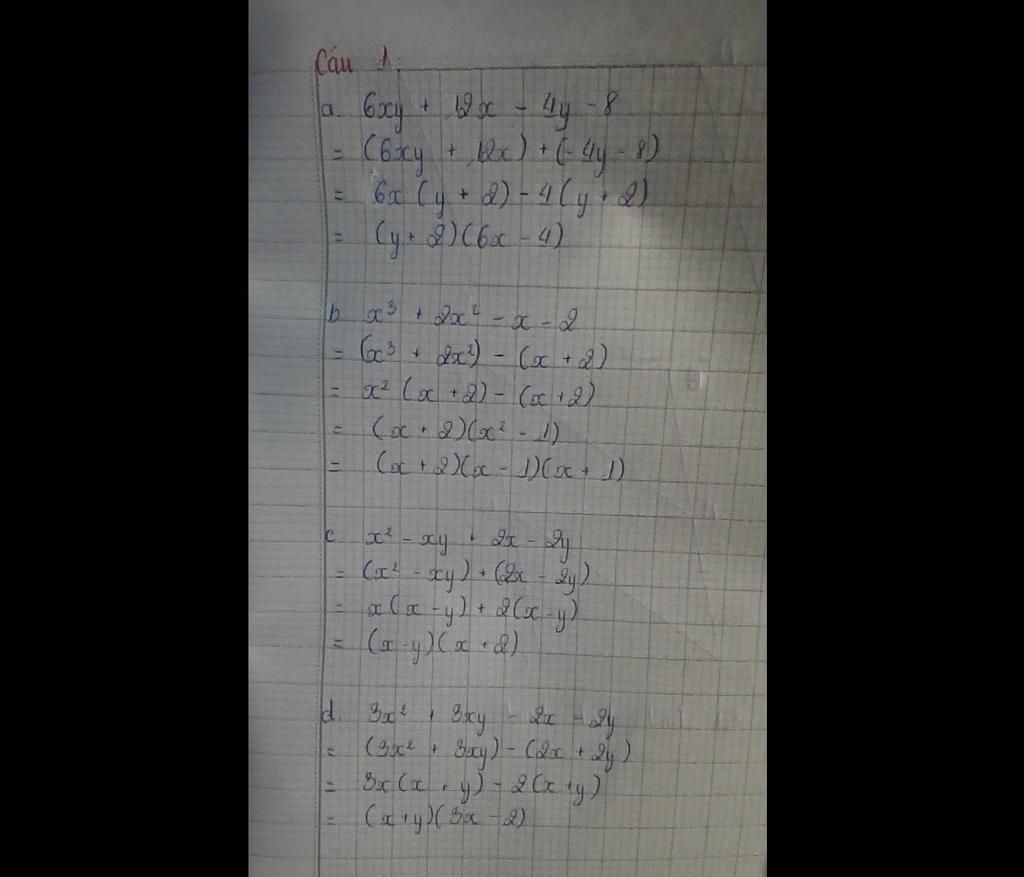 Câu 1.
a. 6xy + 12x - 4y - 8
= (6xy + 12x) + (- 4y - 8)
= 6x (y + 2) - 4 (y + 2)
= (y + 2)(6x - 4)
b x³ + 2x² - x - 2
= (x³ + 2x²) - (x + 2)
= x² (x + 2) - (x + 2)
= (x + 2)(x² - 1)
= (x + 2)(x - 1)(x + 1)
c x² - xy + 2x - 2y
= (x² - xy) + (2x - 2y)
= x (x - y) + 2(x - y)
= (x - y)(x + 2)
d. 3x² + 3xy - 2x - 2y
= (3x² + 3xy) - (2x + 2y)
= 3x (x + y) - 2 (x + y)
= (x + y)(3x - 2)